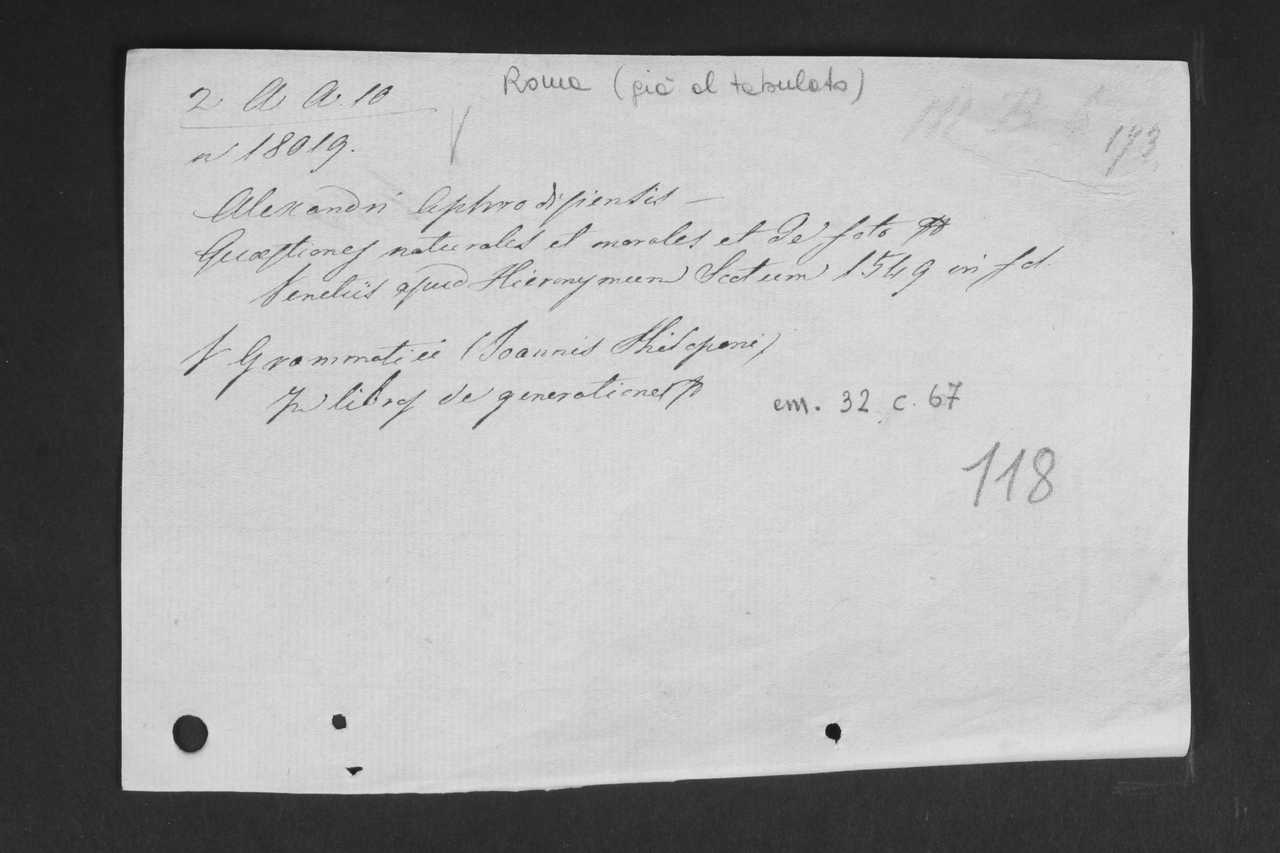 Roma (già al tabulato)
2 A A 10
173
n 18019.
Alexandri Aphrodisiensis -
Quæstiones naturales et morales et De fato
Venetiis apud Hieronymum Scotum 1549 in fol
V Grammatici (Joannis Philoponi)
In libros de generatione
em. 32 c. 67
118